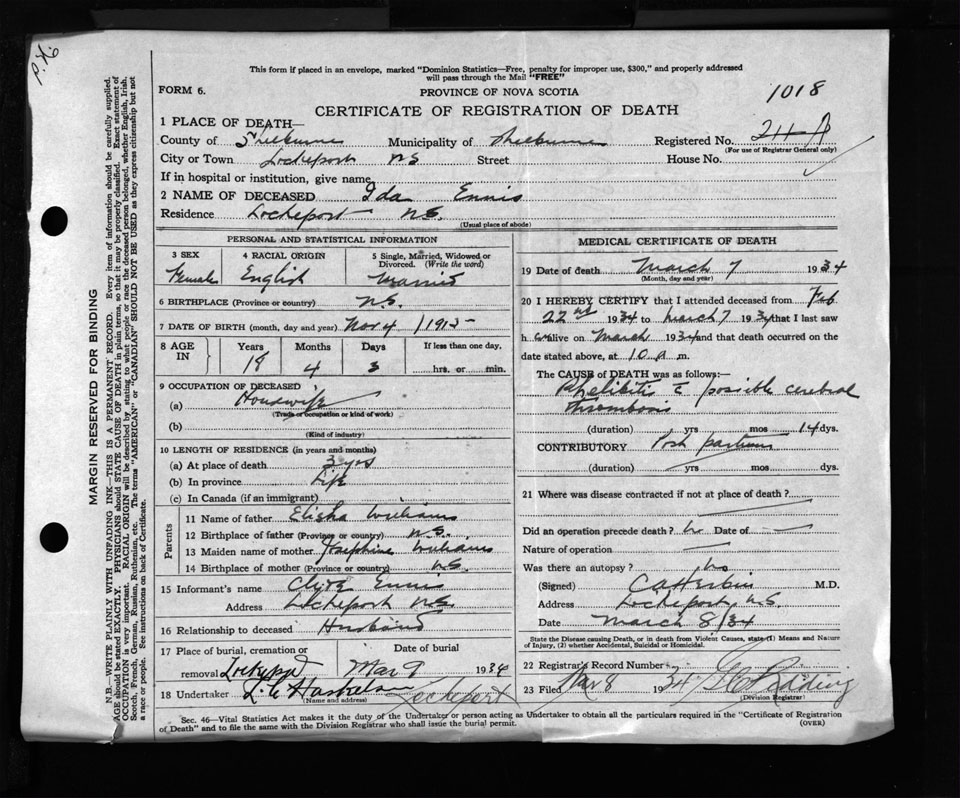 P.X.6
This form if placed in an envelope, marked "Dominion Statistics—Free, penalty for improper use, $300," and properly addressed
will pass through the Mail "FREE"
FORM 6.
PROVINCE OF NOVA SCOTIA
1018
CERTIFICATE OF REGISTRATION OF DEATH
1 PLACE OF DEATH—
County of Shelburne Municipality of Shelburne Registered No.
(For use of Registrar General only)
City or Town Lockeport NS Street House No.
If in hospital or institution, give name
2 NAME OF DECEASED Ida Ennis
Residence Lockeport N.S.
(Usual place of abode)
PERSONAL AND STATISTICAL INFORMATION
3 SEX 4 RACIAL ORIGIN 5 Single, Married, Widowed or
Divorced. (Write the word)
Female English Married
6 BIRTHPLACE (Province or country) N.S.
7 DATE OF BIRTH (month, day and year) Nov 4 / 1915
8 AGE IN Years Months Days If less than one day,
18 4 3 hrs. or min.
9 OCCUPATION OF DECEASED
(a) Housewife
(Trade or occupation or kind of work)
(b)
(Kind of industry)
10 LENGTH OF RESIDENCE (in years and months)
(a) At place of death 3 yrs
(b) In province Life
(c) In Canada (if an immigrant)
Parents
11 Name of father Elisha Williams
12 Birthplace of father (Province or country) N.S.
13 Maiden name of mother Josephine Williams
14 Birthplace of mother (Province or country) N.S.
15 Informant's name Ennis
Address Lockeport N.S.
16 Relationship to deceased Husband
17 Place of burial, cremation or Date of burial
removal Lockeport Mar 9 1934
18 Undertaker Lockeport
(Name and address)
MEDICAL CERTIFICATE OF DEATH
19 Date of death March 7 1934
(Month, day and year)
20 I HEREBY CERTIFY that I attended deceased from Feb.
22nd 1934 to March 7 1934 that I last saw
h er alive on March 1934 and that death occurred on the
date stated above, at 10 a m.
The CAUSE of DEATH was as follows:—
Phelibitis c̄ possible cerebral
thrombosis
(duration) yrs mos 14 dys.
CONTRIBUTORY Post partum
(duration) yrs mos dys.
21 Where was disease contracted if not at place of death?
Did an operation precede death? No Date of
Nature of operation
Was there an autopsy? No
(Signed) M.D.
Address Lockeport, N.S.
Date March 8/34
State the Disease causing Death, or in death from Violent Causes, state (1) Means and Nature
of Injury, (2) whether Accidental, Suicidal or Homicidal.
22 Registrar's Record Number
23 Filed Mar 8 1934
(Division Registrar)
Sec. 46—Vital Statistics Act makes it the duty of the Undertaker or person acting as Undertaker to obtain all the particulars required in the "Certificate of Registration
of Death" and to file the same with the Division Registrar who shall issue the burial permit. (OVER)
MARGIN RESERVED FOR BINDING
N.B.—WRITE PLAINLY WITH UNFADING INK—THIS IS A PERMANENT RECORD. Every item of information should be carefully supplied.
AGE should be stated EXACTLY. PHYSICIANS should STATE CAUSE OF DEATH in plain terms, so that it may be properly classified. Exact statement of
OCCUPATION is very important. RACIAL ORIGIN will be described by stating to what people or race the deceased person belonged, whether English, Irish,
Scotch, French, German, Russian, Ruthenian, etc. The terms "AMERICAN" or "CANADIAN" SHOULD NOT BE USED as they express citizenship but not
a race or people. See instructions on back of Certificate.